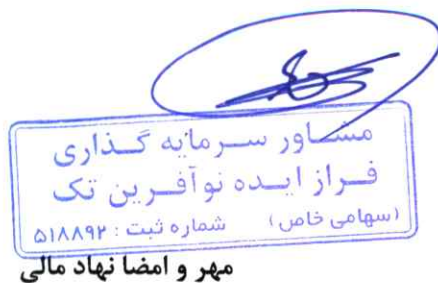 مشاور سرمایه گذاری
فراز ایده نوآفرین تک
(سهامی خاص) شماره ثبت : ۵۱۸۸۹۲
مهر و امضا نهاد مالی